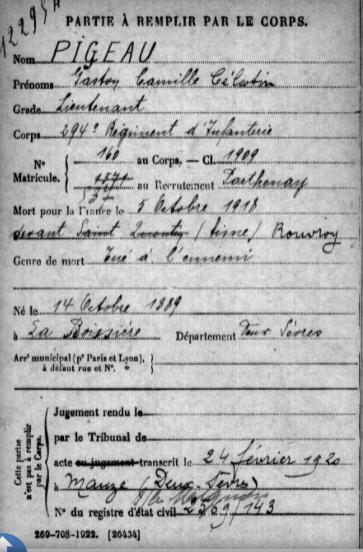 PARTIE À REMPLIR PAR LE CORPS.
Nom PIGEAU
Prénoms Gaston Camille Célestin
Grade Lieutenant
Corps 294e Régiment d'Infanterie
N° 160 au Corps. — Cl. 1909
Matricule. au Recrutement Parthenay
Mort pour la France le 5 Octobre 1918
devant Saint Quentin (Aisne) Rouvroy
Genre de mort Tué à l'ennemi
Né le 14 Octobre 1889
à La Boissière Département Deux Sèvres
Arrt municipal (pr Paris et Lyon),
à défaut rue et N°.
Cette partie n'est pas à remplir par le Corps.
Jugement rendu le
par le Tribunal de
acte ou jugement transcrit le 24 février 1920
à Mauzé (Deux-Sèvres)
N° du registre d'état civil /143
269-708-1922. [26434]